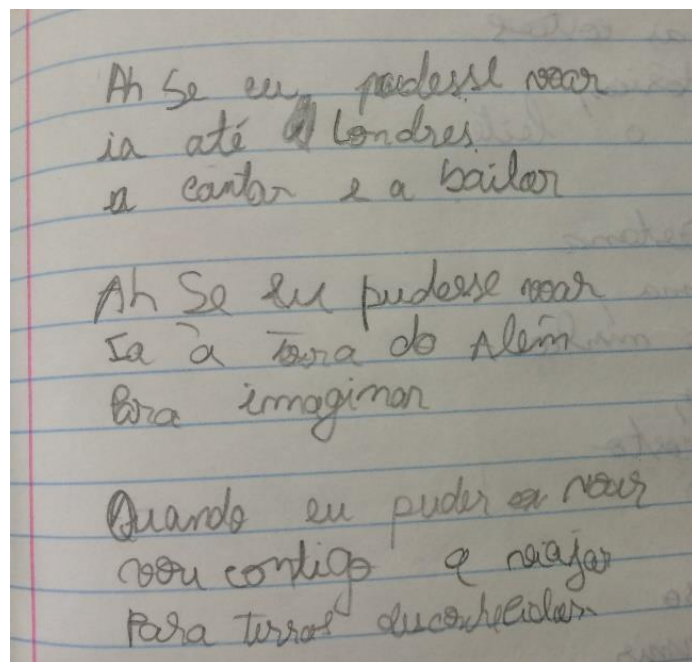 Ah Se eu pudesse voar
ia até Londres
a cantar e a bailar
Ah Se eu pudesse voar
Ia à terra do Além
Para imaginar
Quando eu puder voar
vou contigo e viajar
Para terras desconhecidas